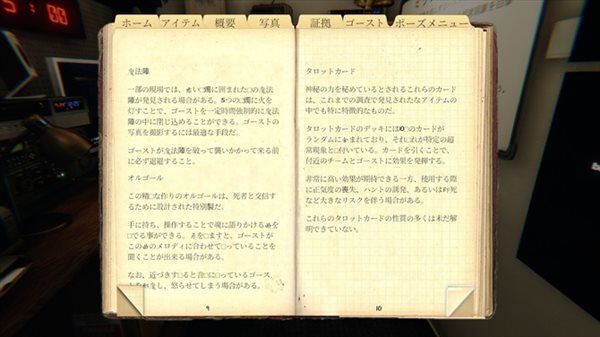 5:00
ホーム アイテム 概要 写真 証拠 ゴースト ポーズメニュー
魔法陣
一部の現場では、赤い□燭に囲まれた□の魔法
陣が発見される場合がある。5つの□燭に火を
灯すことで、ゴーストを一定時間強制的に魔法
陣の中に閉じ込めることができる。ゴーストの
写真を撮影するには最適な手段だ。
ゴーストが魔法陣を破って襲いかかって来る前
に必ず退避すること。
オルゴール
この精□な作りのオルゴールは、死者と交信す
るために設計された特別製だ。
手に持ち、操作することで魂に語りかける□を
□でる事ができる。□を□ますと、ゴーストが
このめのメロディに合わせて□っていることを
聞くことが出来る場合がある。
なお、近づきす□ると音□に□っているゴース
し、怒らせてしまう場合がある。
9
タロットカード
神秘の力を秘めているとされるこれらのカード
は、これまでの調査で発見されたなアイテムの
中でも特に特徴的なものだ。
タロットカードのデッキには10□のカードが
ランダムに含まれており、それ□れが特定の超
常現象と□付いている。カードを引くことで、
付近のチームとゴーストに効果を発揮する。
非常に高い効果が期待できる一方、使用する際
に正気度の喪失、ハントの誘発、あるいは即死
など大きなリスクを伴う場合がある。
これらのタロットカードの性質の多くは未だ解
明できていない。
10